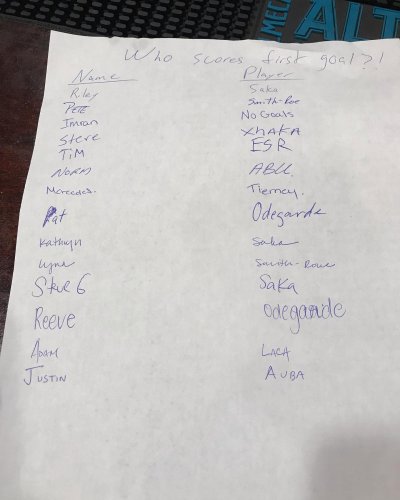 MEC
ALT
Who scores first goal?!
Name Player
Riley Saka
PETE Smith-Roe
Imran No Goals
Steve XHAKA
TiM ESR
NORM
Mercedes. Tierney.
Pat Odegarde
Kathryn Saka
Lynne Smith-Rowe
Steve G Saka
Reeve Odegaarde
ADAM LACA
JUSTIN AUBA